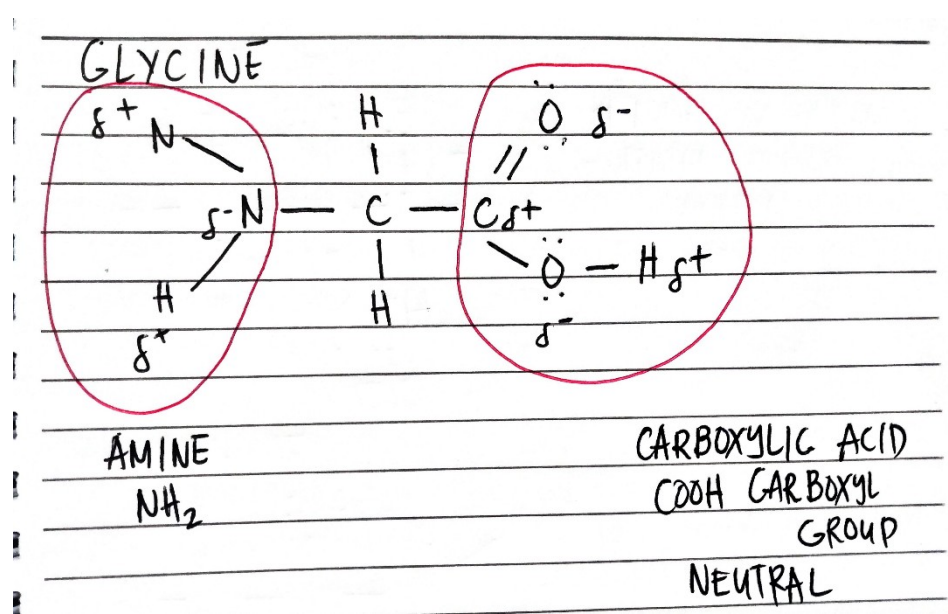 GLYCINE
δ+ N H Ö δ-
δ-N — C — C δ+
H H Ö — H δ+
δ+ δ-
AMINE CARBOXYLIC ACID
NH₂ COOH CARBOXYL
GROUP
NEUTRAL